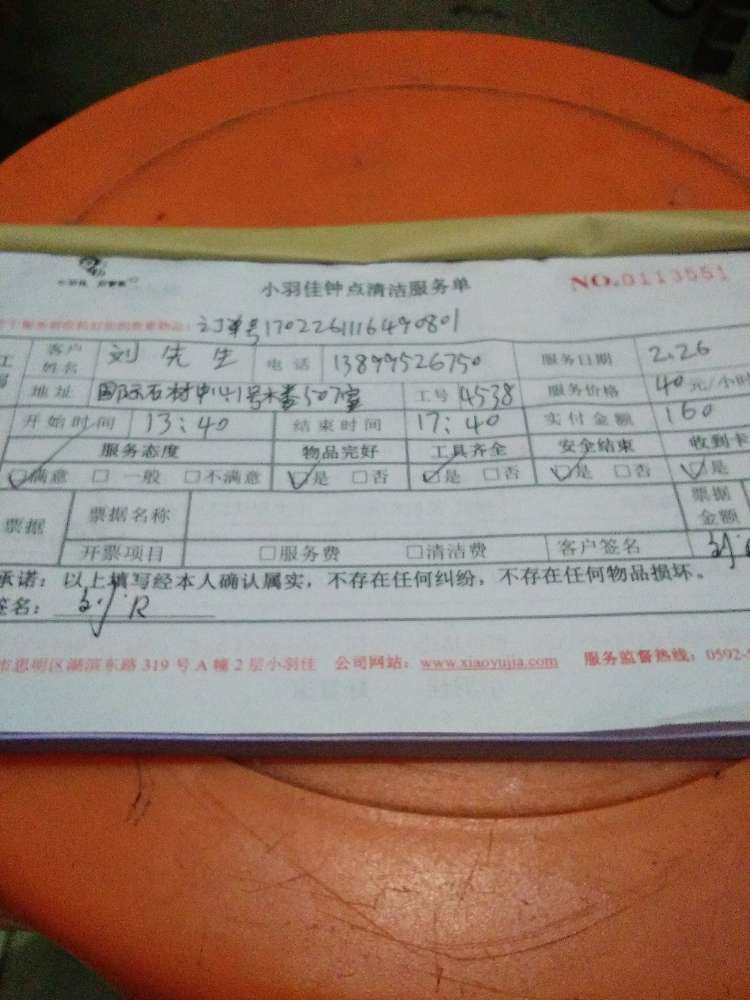 小羽佳钟点清洁服务单 NO.0113551
订单号1702261116490801
客户姓名 刘先生 电话 13899526750 服务日期 2.26
地址 国际石材中心41号楼507室 工号 4538 服务价格 40元/小时
开始时间 13:40 结束时间 17:40 实付金额 160
服务态度 物品完好 工具齐全 安全结束 收到卡
☑满意 □一般 □不满意 ☑是 □否 ☑是 □否 ☑是 □否 ☑是
票据 票据名称 票据金额
开票项目 □服务费 □清洁费 客户签名
承诺:以上填写经本人确认属实,不存在任何纠纷,不存在任何物品损坏。
签名:
市思明区湖滨东路319号A幢2层小羽佳 公司网站:www.xiaoyujia.com 服务监督热线:0592-5